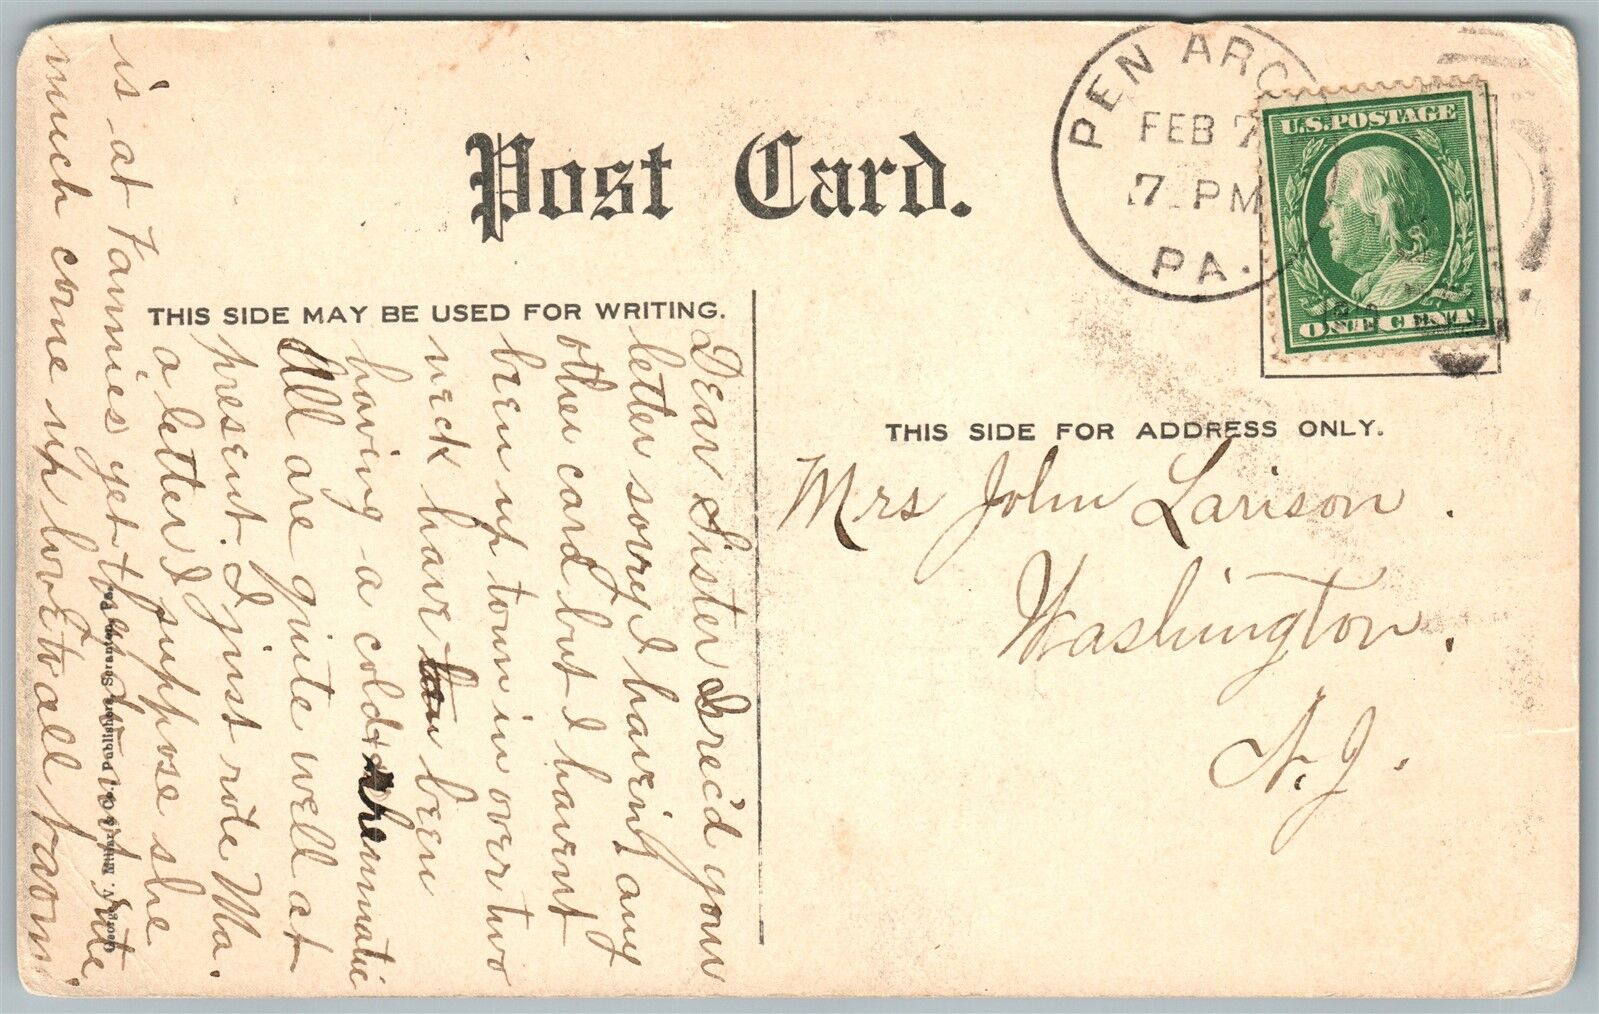 Post Card.
PEN ARG
FEB 7
7 PM
PA.
U.S. POSTAGE
ONE CENT
THIS SIDE MAY BE USED FOR WRITING.
THIS SIDE FOR ADDRESS ONLY.
Mrs John Larison.
Washington.
N. J.
Dear Sister I rec'd your
letter sorry I havent any
other card but I havent
been up town in over two
week have been
having a cold + rheumatic
All are quite well at
present. I just rote Ma.
a letter I suppose she
is at Fannies yet
much come up love to all from
George V. Millar & Co., Publishers, Scranton, Pa.